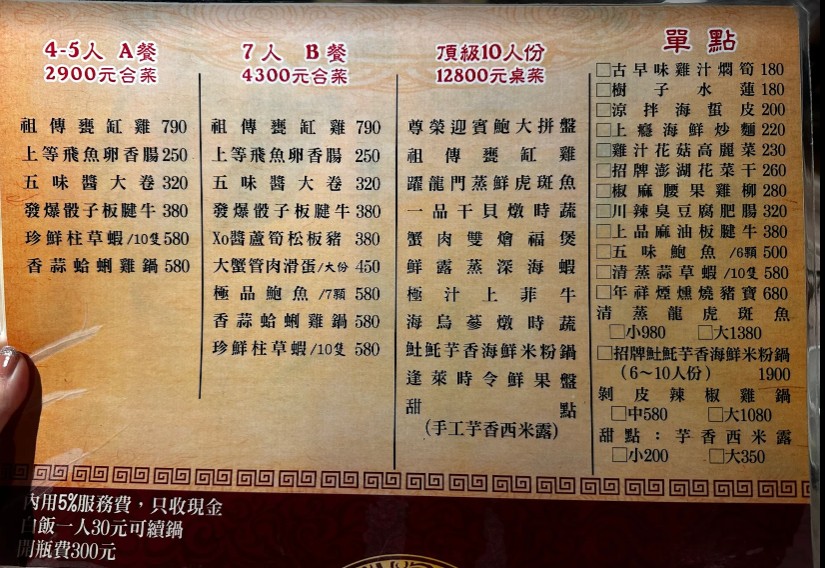 4-5人 A餐
2900元合菜
祖傳甕缸雞 790
上等飛魚卵香腸 250
五味醬大卷 320
發爆骰子板腱牛 380
珍鮮柱草蝦/10隻 580
香蒜蛤蜊雞鍋 580
7人 B餐
4300元合菜
祖傳甕缸雞 790
上等飛魚卵香腸 250
五味醬大卷 320
發爆骰子板腱牛 380
Xo醬蘆筍松板豬 380
大蟹管肉滑蛋/大份 450
極品鮑魚/7顆 580
香蒜蛤蜊雞鍋 580
珍鮮柱草蝦/10隻 580
頂級10人份
12800元桌菜
尊榮迎賓鮑大拼盤
祖傳甕缸雞
躍龍門蒸鮮虎斑魚
一品干貝燉時蔬
蟹肉雙燴福煲
鮮露蒸深海蝦
極汁上菲牛
海烏蔘燉時蔬
𩵚魠芋香海鮮米粉鍋
逢萊時令鮮果盤
甜點
(手工芋香西米露)
單點
□古早味雞汁燜筍 180
□樹子水蓮 180
□涼拌海蜇皮 200
□上癮海鮮炒麵 220
□雞汁花菇高麗菜 230
□招牌澎湖花菜干 260
□椒麻腰果雞柳 280
□川辣臭豆腐肥腸 320
□上品麻油板腱牛 380
□五味鮑魚/6顆 500
□清蒸蒜草蝦/10隻 580
□年祥煙燻燒豬寶 680
清蒸龍虎斑魚
□小980 □大1380
□招牌𩵚魠芋香海鮮米粉鍋
(6～10人份) 1900
剝皮辣椒雞鍋
□中580 □大1080
甜點：芋香西米露
□小200 □大350
內用5%服務費，只收現金
白飯一人30元可續鍋
開瓶費300元